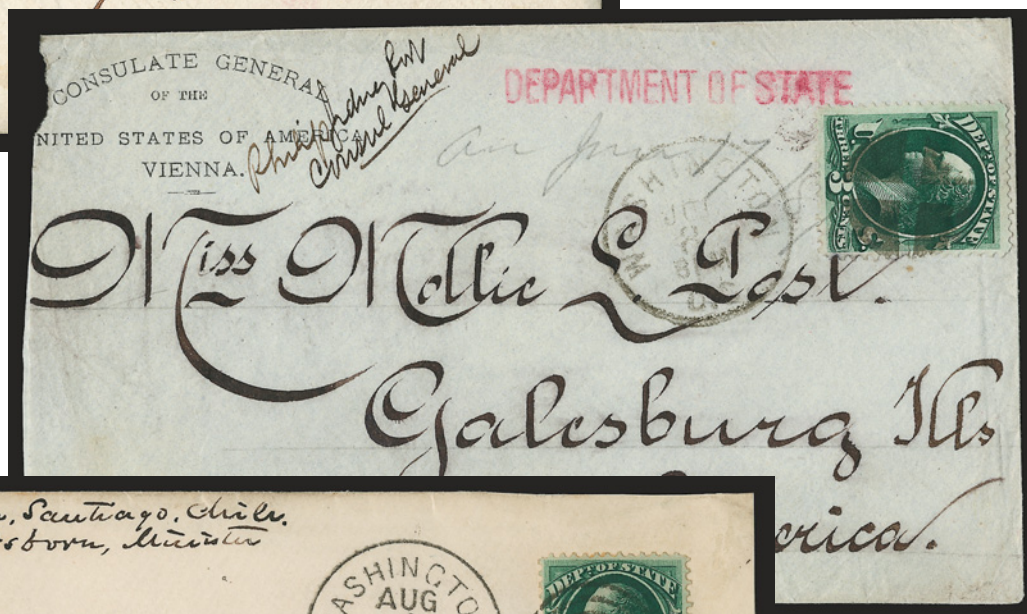 CONSULATE GENERAL
OF THE
NITED STATES OF AMERICA
VIENNA.
Philip Sidney Post
Consul General
DEPARTMENT OF STATE
WASHINGTON
D.C.
DEPT. OF STATE
3 CENTS
Miss Mollie L. Post.
Galesburg Ills
erica.
Santiago. Chile.
sborn, Minister
ASHINGTO
AUG
DEPT. OF STATE